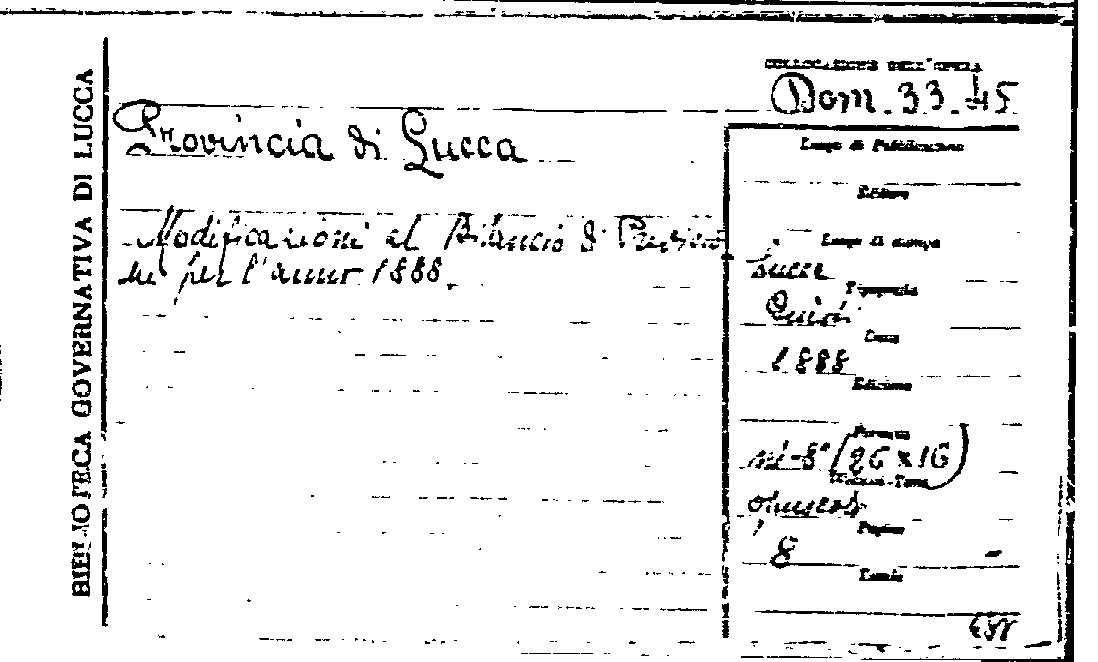 BIBLIOTECA GOVERNATIVA DI LUCCA
COLLOCAZIONE DELL'OPERA
Dom. 33. 45
Provincia di Lucca
Modificazioni al Bilancio di Previsio
ne per l'anno 1888.
Luogo di Pubblicazione
Editore
Luogo di stampa
Lucca
Tipografia
Guidi
Data
1888
Edizione
Formato
in-8° (26 x 16)
Volumi-Tomi
opuscolo
Pagine
8 -
Tavole